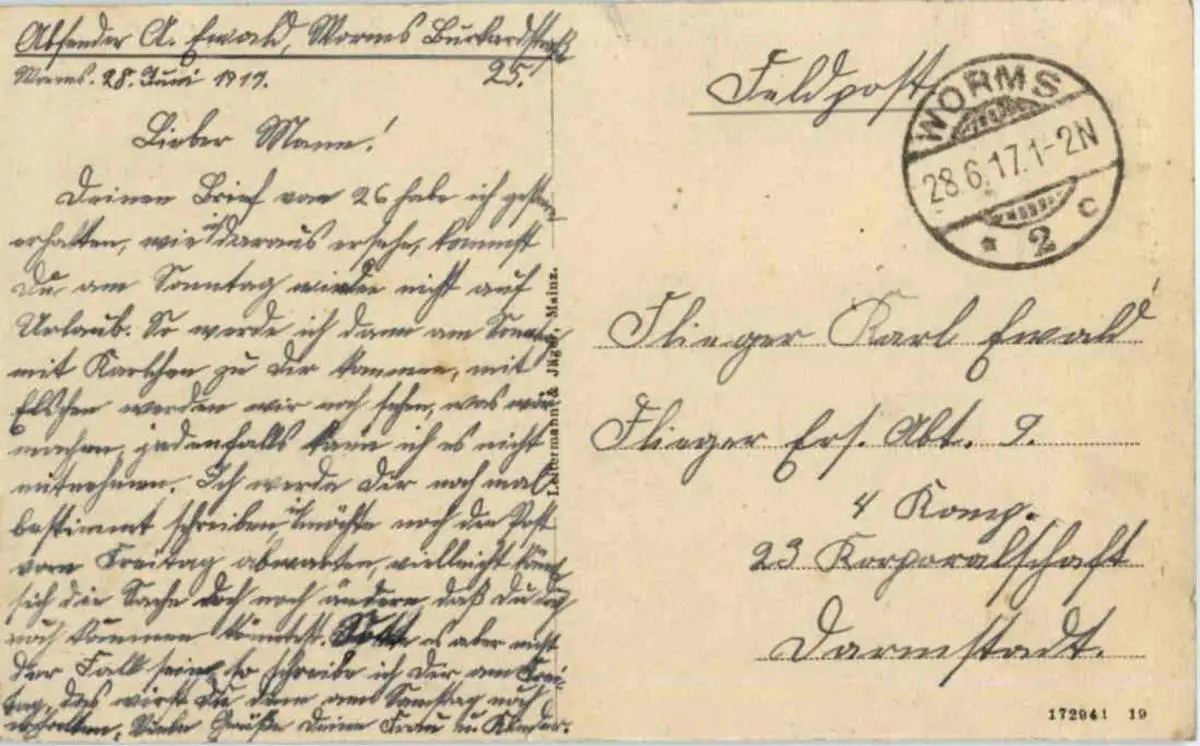 Absender A. Ewald, Worms Burkardstraße
25.
Worms. 28. Juni 1917.
Lieber Mann!
Deinen Brief vom 26 habe ich gestern
erhalten, wie ich daraus ersehe, kommst
Du am Sonntag wieder nicht auf
Urlaub. So werde ich dann am Sonntag
mit Karlchen zu Dir kommen, mit
Elschen werden wir noch sehen, was wir
machen, jedenfalls kann ich es nicht
mitnehmen. Ich werde Dir noch mal
bestimmt schreiben, ich möchte noch die Post
vom Freitag abwarten, vielleicht könnt
sich die Sache doch noch ändern, daß Du doch
noch kommen könntest. Sollte es aber nicht
der Fall sein, so schreibe ich Dir am Frei-
tag, das wirst Du dann am Samstag noch
erhalten. Viele Grüße Deine Frau u. Kinder.
Leitermann & Jäger, Mainz.
Feldpost.
WORMS
28.6.17.1-2N
* 2 c
Flieger Karl Ewald
Flieger Ers. Abt. 9.
4 Komp.
23 Korporalschaft
Darmstadt.
172941 19